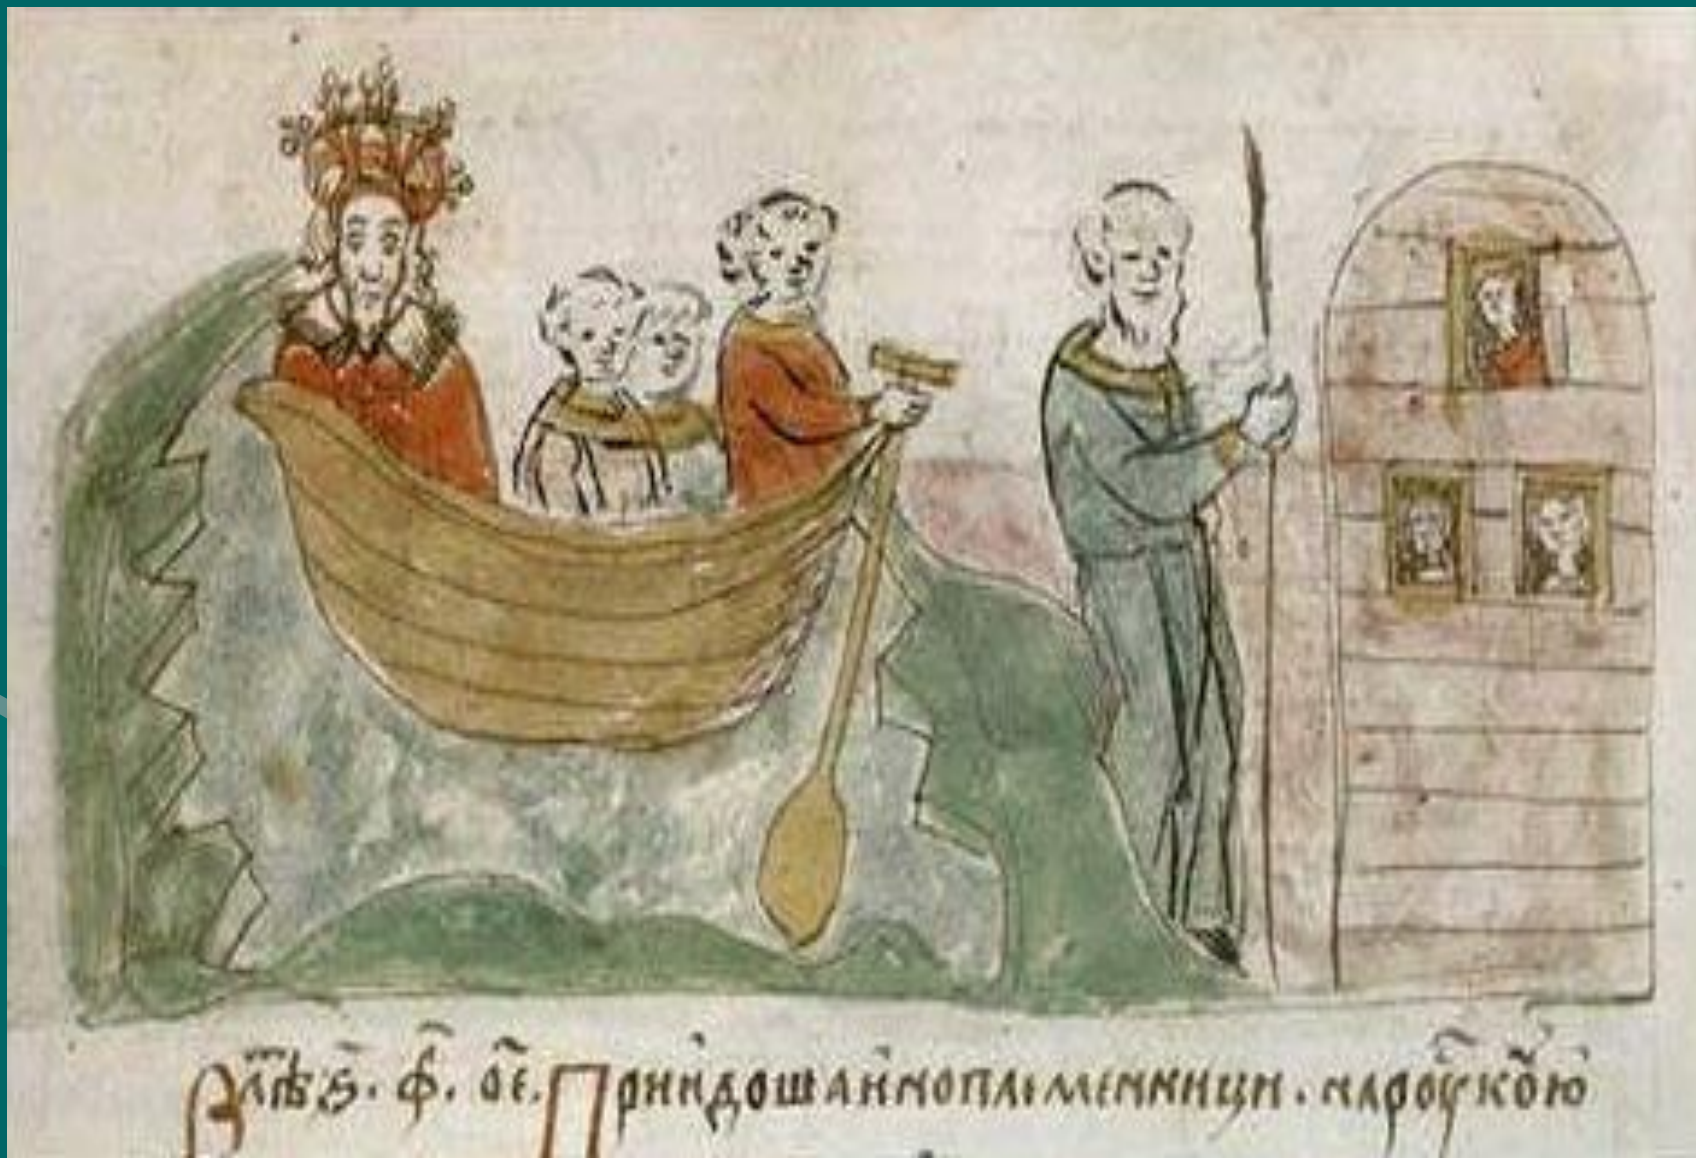 В лѣⷮ ѕ҃. ф҃. о҃е. Приидоша иноплеменници. на роускою